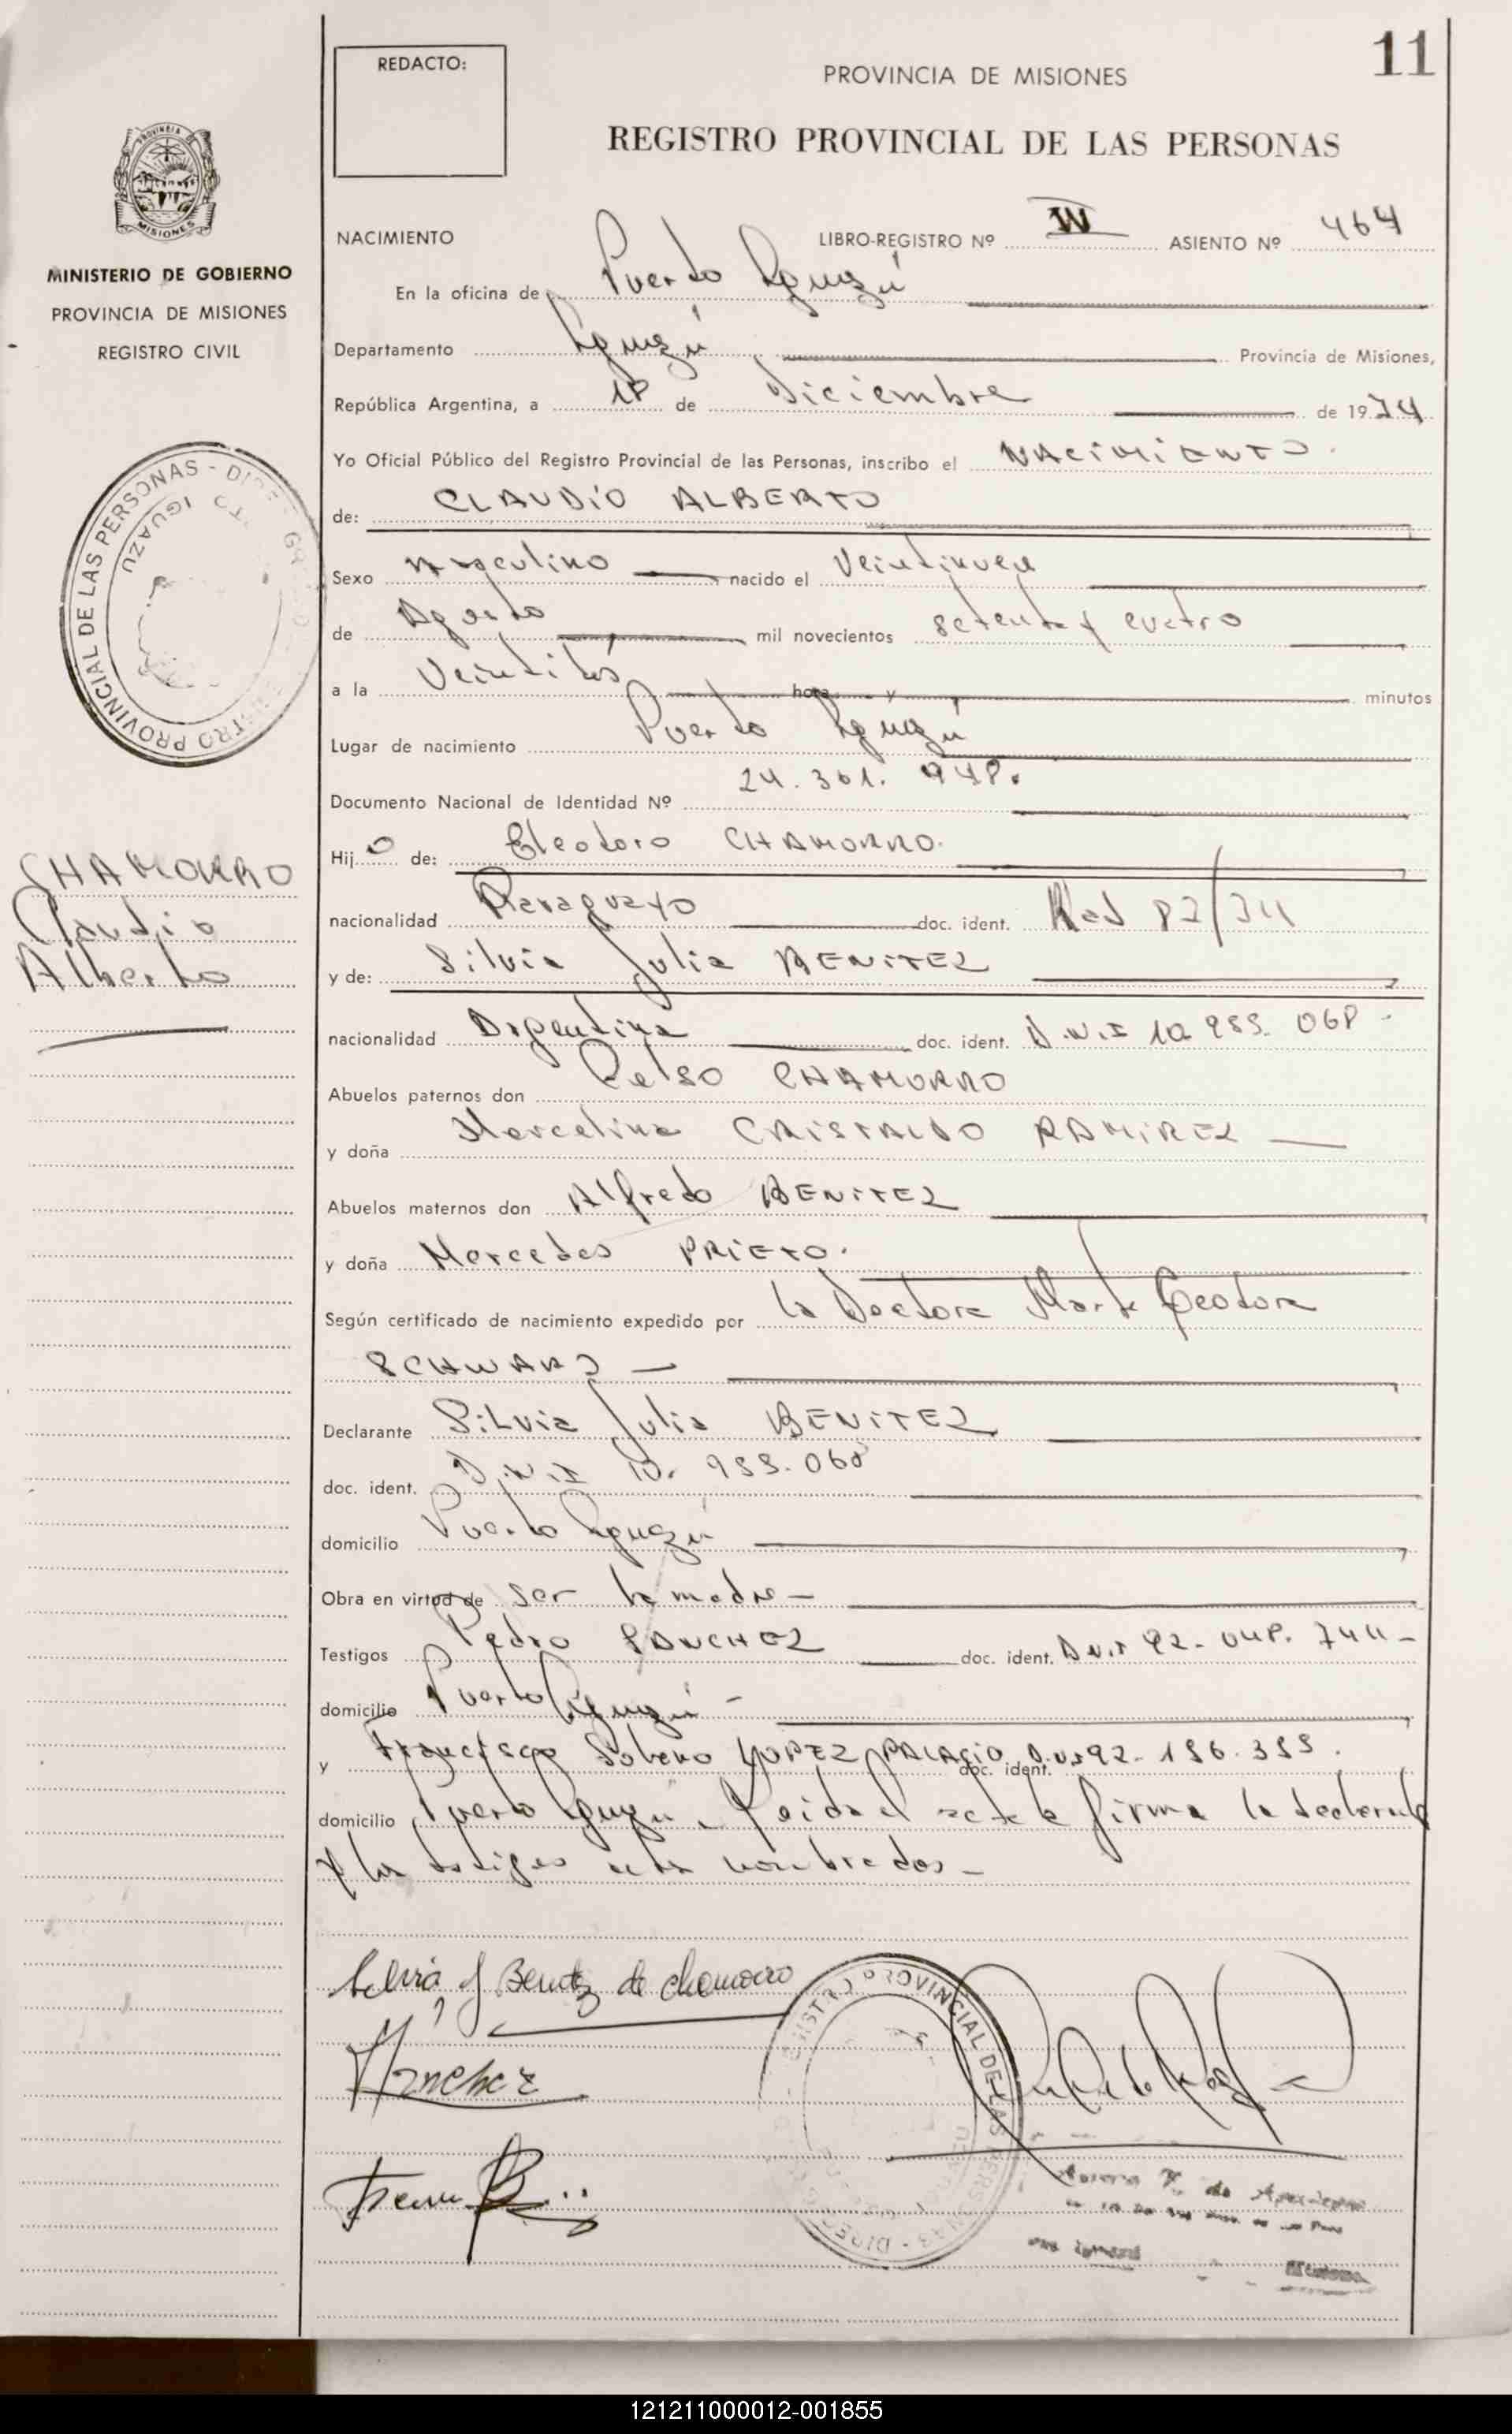 11
REDACTO:
PROVINCIA DE MISIONES
REGISTRO PROVINCIAL DE LAS PERSONAS
MISIONES
MINISTERIO DE GOBIERNO
PROVINCIA DE MISIONES
REGISTRO CIVIL
NACIMIENTO LIBRO-REGISTRO Nº IV ASIENTO Nº 464
En la oficina de Puerto Iguazú
Departamento Iguazú Provincia de Misiones,
República Argentina, a 18 de Diciembre de 1974
Yo Oficial Público del Registro Provincial de las Personas, inscribo el NACIMIENTO.
de: CLAUDIO ALBERTO
Sexo Masculino nacido el Veintinueve
de Agosto mil novecientos setenta y cuatro
a la Veintidós hora y minutos
Lugar de nacimiento Puerto Iguazú
Documento Nacional de Identidad Nº 24.301.948.
Hijo de: Eleodoro CHAMORRO.
CHAMORRO
Claudio
Alberto
nacionalidad Paraguayo doc. ident.
y de: Silvia Julia BENITEZ
nacionalidad Argentina doc. ident. D.N.I 10 068
Abuelos paternos don Celso CHAMORRO
y doña Marcelina CRISTALDO RAMIREZ
Abuelos maternos don Alfredo BENITEZ
y doña Mercedes PRIETO.
Según certificado de nacimiento expedido por la Doctora Marta Teodora
SCHWARZ
Declarante Silvia Julia BENITEZ
doc. ident. D.N.I 10. 068
domicilio Puerto Iguazú
Obra en virtud de ser la madre
Testigos Pedro SANCHEZ doc. ident. D.N.I 92.048.744
domicilio Puerto Iguazú
y Francisco LOPEZ PALACIO doc. ident. 92.
domicilio Puerto Iguazú. Leida el acta la firma la declarante
y los testigos nombrados
Silvia J Benitez de Chamorro
Sanchez
REGISTRO PROVINCIAL DE LAS PERSONAS
IGUAZU
121211000012-001855